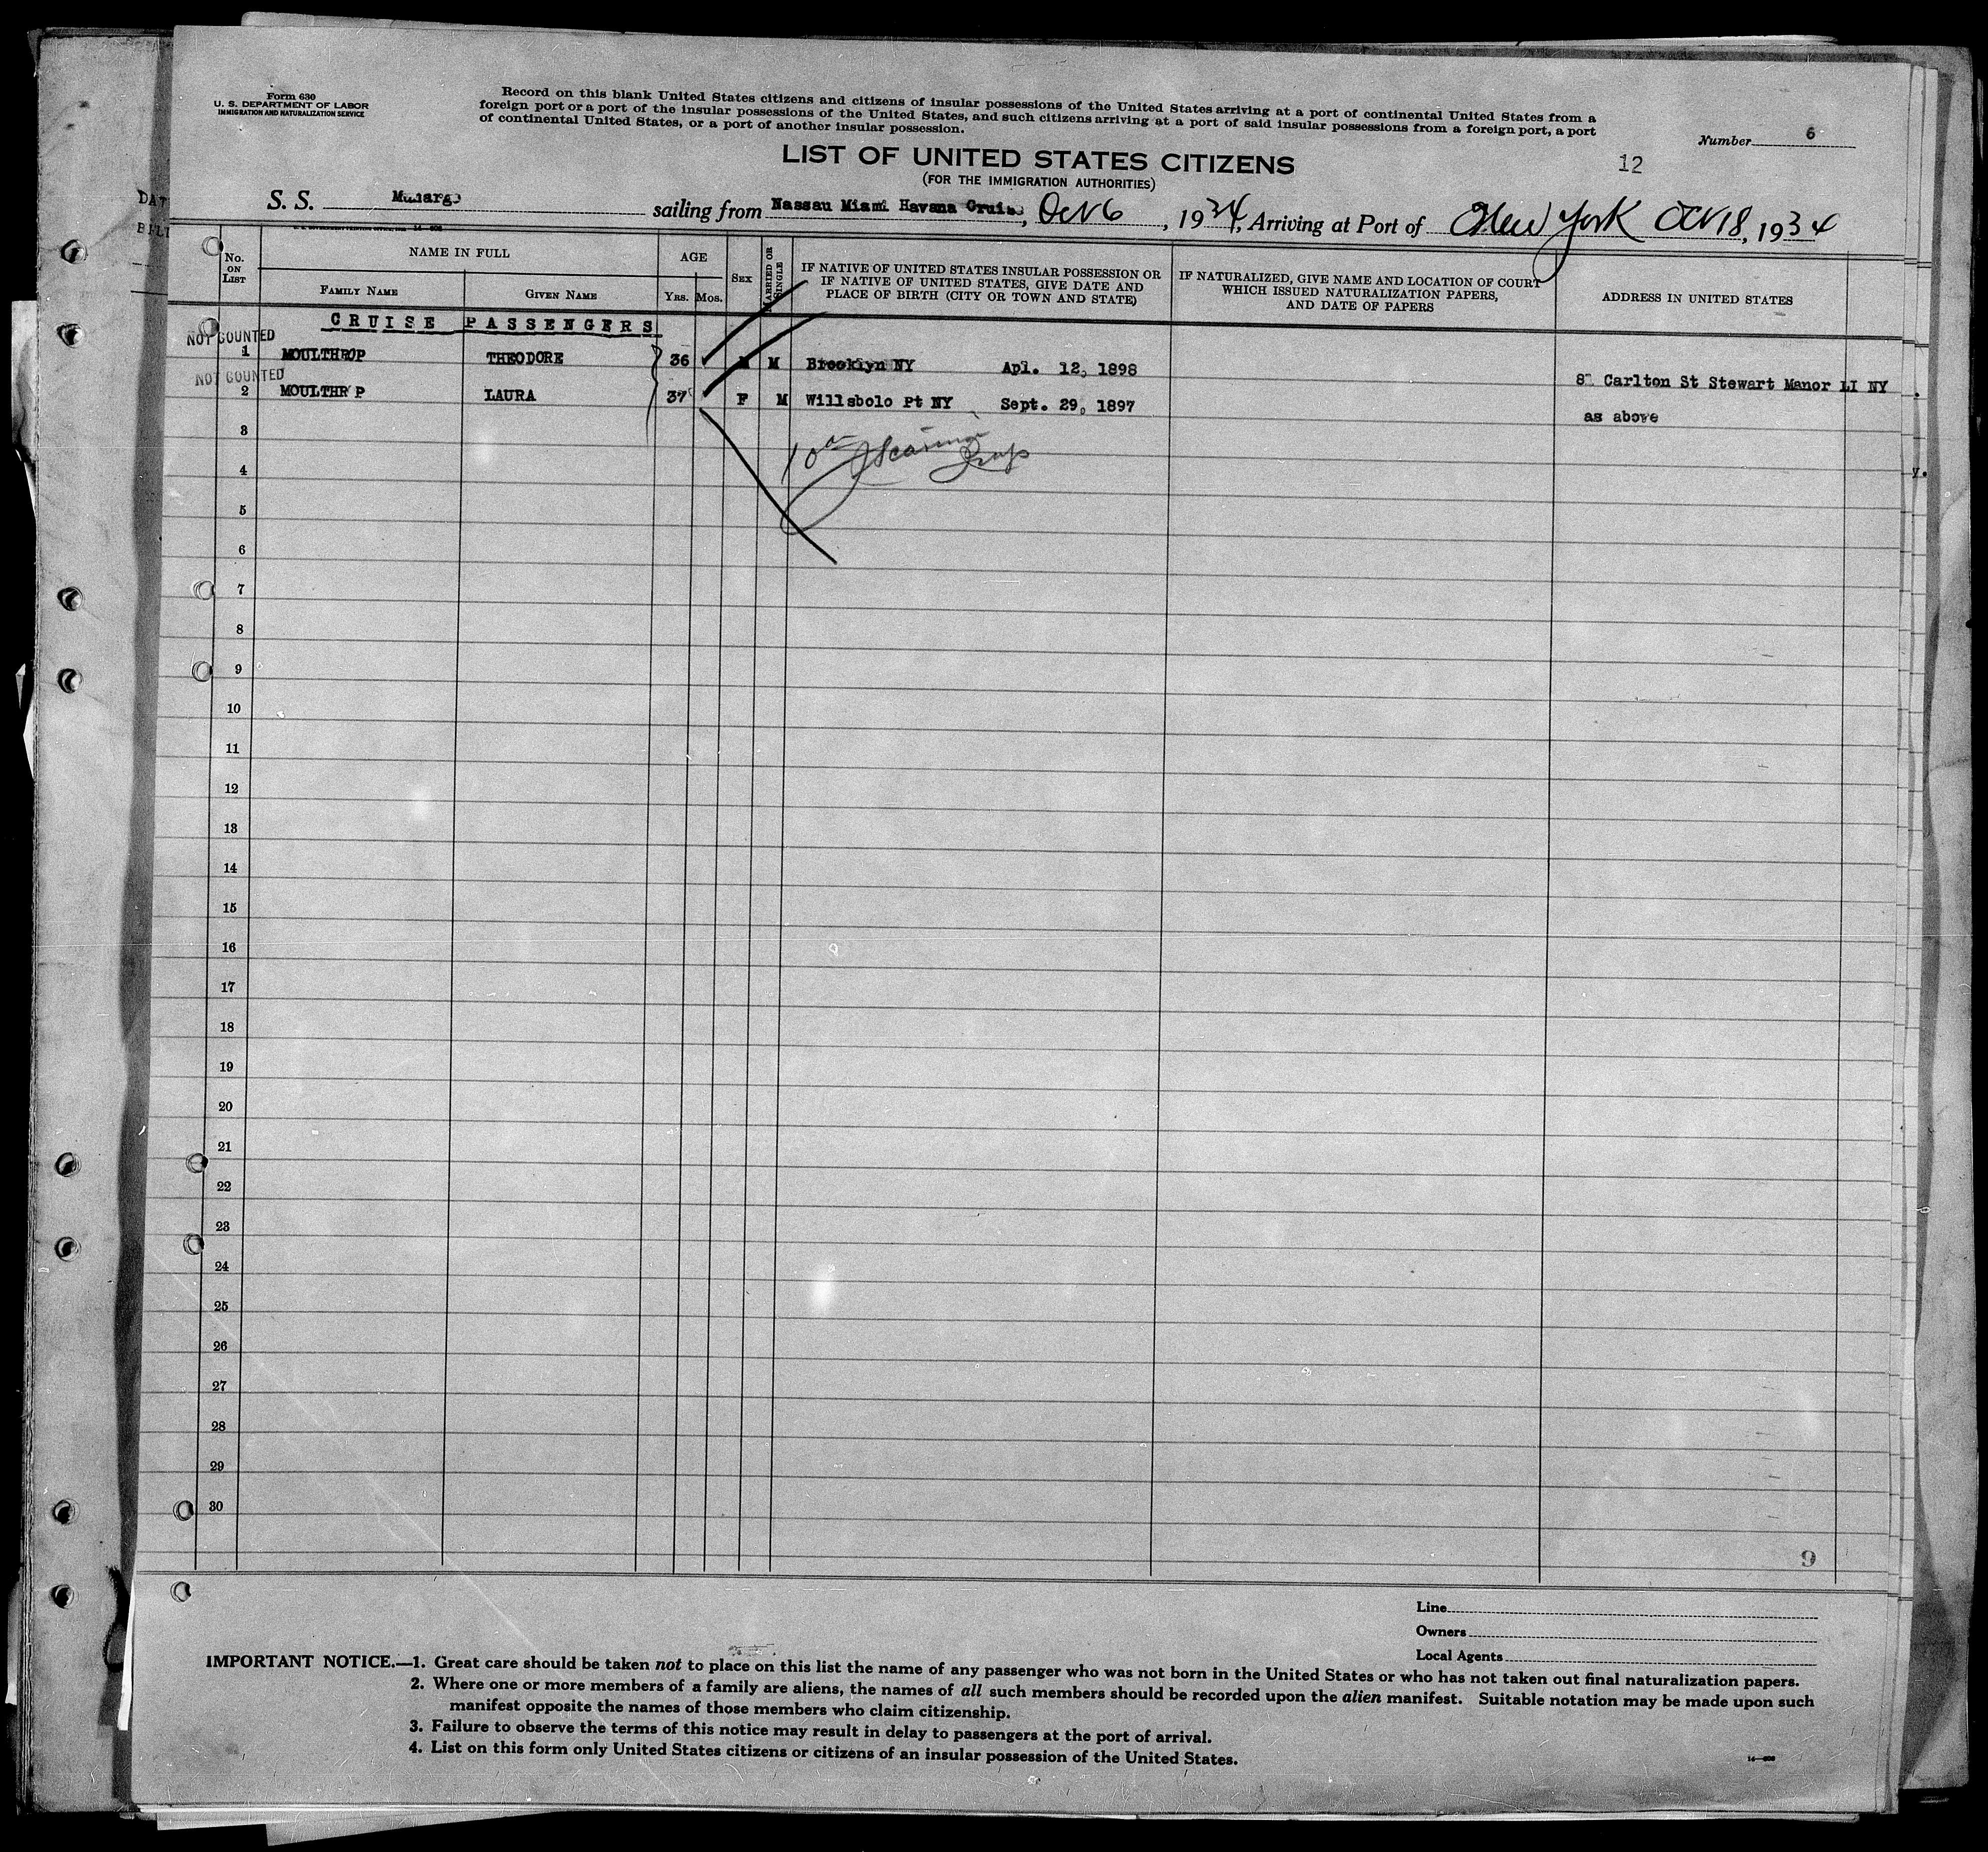 Form 630
U. S. DEPARTMENT OF LABOR
IMMIGRATION AND NATURALIZATION SERVICE
Record on this blank United States citizens and citizens of insular possessions of the United States arriving at a port of continental United States from a
foreign port or a port of the insular possessions of the United States, and such citizens arriving at a port of said insular possessions from a foreign port, a port
of continental United States, or a port of another insular possession.
Number 6
12
LIST OF UNITED STATES CITIZENS
(FOR THE IMMIGRATION AUTHORITIES)
S. S. Munargo sailing from Nassau Miami Havana Cruise, Oct 6, 1934, Arriving at Port of New York Oct 18, 1934
No. ON LIST
NAME IN FULL
FAMILY NAME
GIVEN NAME
AGE
YRS.
MOS.
SEX
MARRIED OR SINGLE
IF NATIVE OF UNITED STATES INSULAR POSSESSION OR
IF NATIVE OF UNITED STATES, GIVE DATE AND
PLACE OF BIRTH (CITY OR TOWN AND STATE)
IF NATURALIZED, GIVE NAME AND LOCATION OF COURT
WHICH ISSUED NATURALIZATION PAPERS,
AND DATE OF PAPERS
ADDRESS IN UNITED STATES
CRUISE PASSENGERS
NOT COUNTED
1 MOULTHROP THEODORE 36 M M Brooklyn NY Apl. 12, 1898 Carlton St Stewart Manor LI NY
NOT COUNTED
2 MOULTHR P LAURA 37 F M Willsbolo Pt NY Sept. 29, 1897 as above
3
4
5
6
7
8
9
10
11
12
13
14
15
16
17
18
19
20
21
22
23
24
25
26
27
28
29
30
9
Line
Owners
Local Agents
IMPORTANT NOTICE.—1. Great care should be taken not to place on this list the name of any passenger who was not born in the United States or who has not taken out final naturalization papers.
2. Where one or more members of a family are aliens, the names of all such members should be recorded upon the alien manifest. Suitable notation may be made upon such
manifest opposite the names of those members who claim citizenship.
3. Failure to observe the terms of this notice may result in delay to passengers at the port of arrival.
4. List on this form only United States citizens or citizens of an insular possession of the United States.